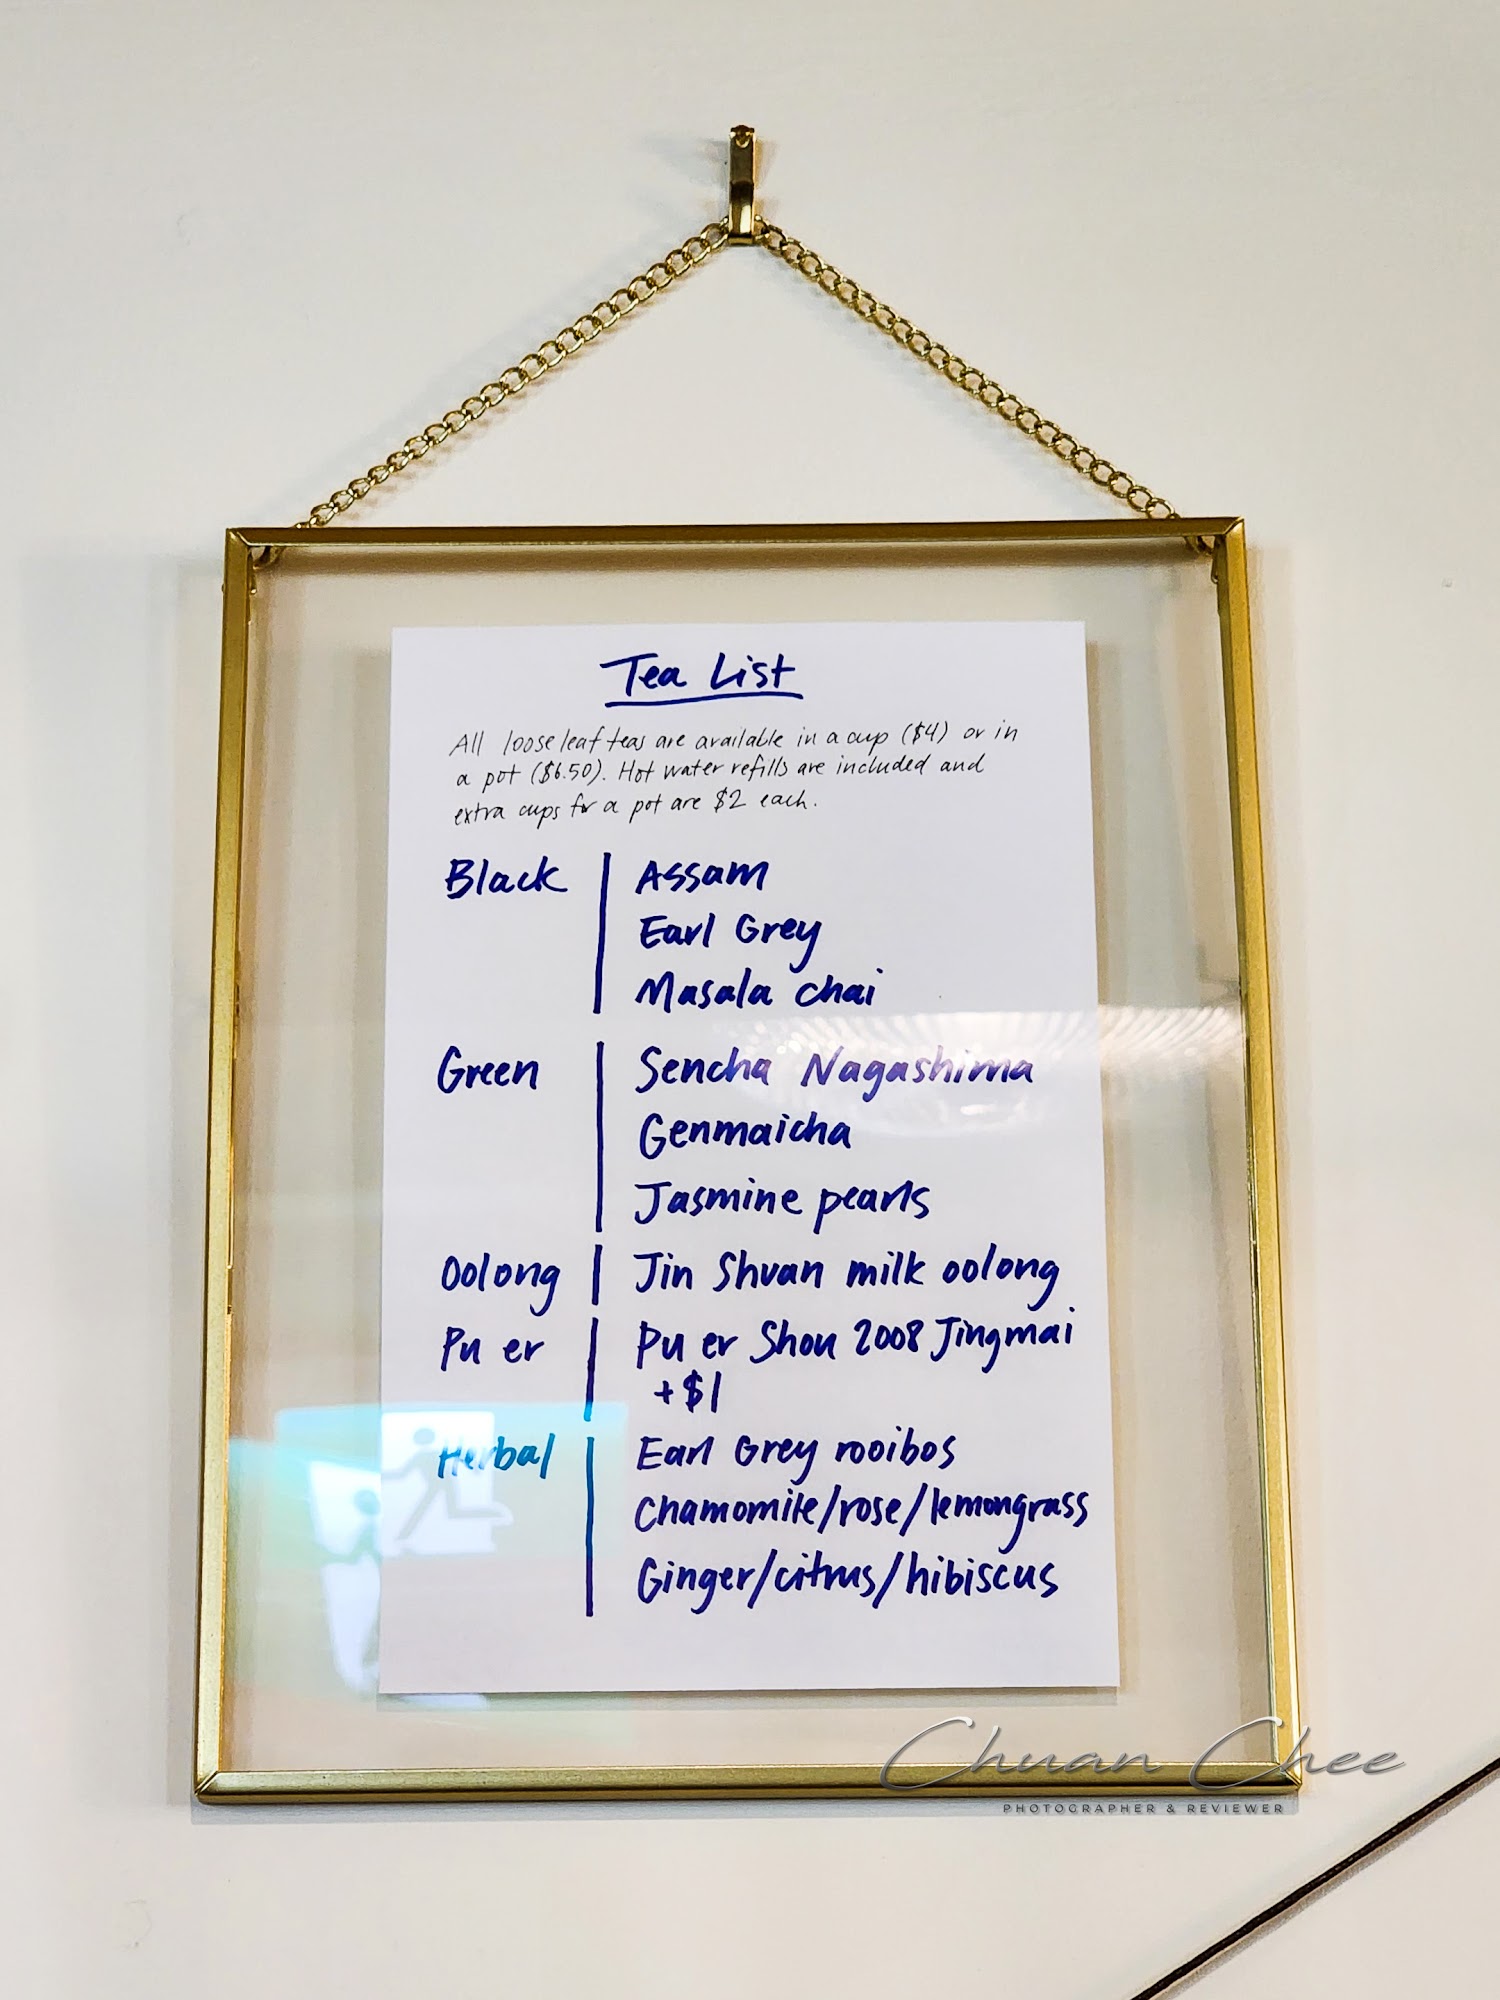 Tea List
All loose leaf teas are available in a cup ($4) or in
a pot ($6.50). Hot water refills are included and
extra cups for a pot are $2 each.
Black | Assam
Earl Grey
Masala chai
Green | Sencha Nagashima
Genmaicha
Jasmine pearls
Oolong | Jin Shuan milk oolong
Pu er | Pu er Shou 2008 Jingmai
+$1
Herbal | Earl Grey rooibos
Chamomile/rose/lemongrass
Ginger/citrus/hibiscus
Chuan Chee
PHOTOGRAPHER & REVIEWER